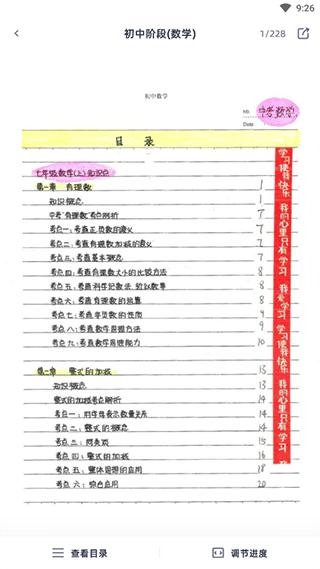 9:26
初中阶段(数学)
1/228
初中数学
No.
中考数学
Date
目录
七年级数学(上)知识点
第一章 有理数 1
知识概念 1
中考"有理数"考点剖析 7
考点一:考查正负数的意义 7
考点二:考查有理数加减的意义 7
考点三:考查基本概念 7
考点四:考查有理数大小的比较方法 8
考点五:考查科学记数法、近似数等 8
考点六:考查有理数的运算 8
考点七:考查非负数的性质
考点八:考查数学思想方法 9
考点九:考查数学思维能力 10
整式的加减 13
知识概念 13
整式的加减考点解析 14
考点一:用字母表示数量关系 14
考点二:整式的概念 14
考点三:同类项 15
考点四:整式的加减 16
考点五:整体思想的应用 18
考点六:综合应用 20
学习使我快乐 我的心里只有学习 我爱学习 学习使我快乐 我的心里只有学习
查看目录
调节进度